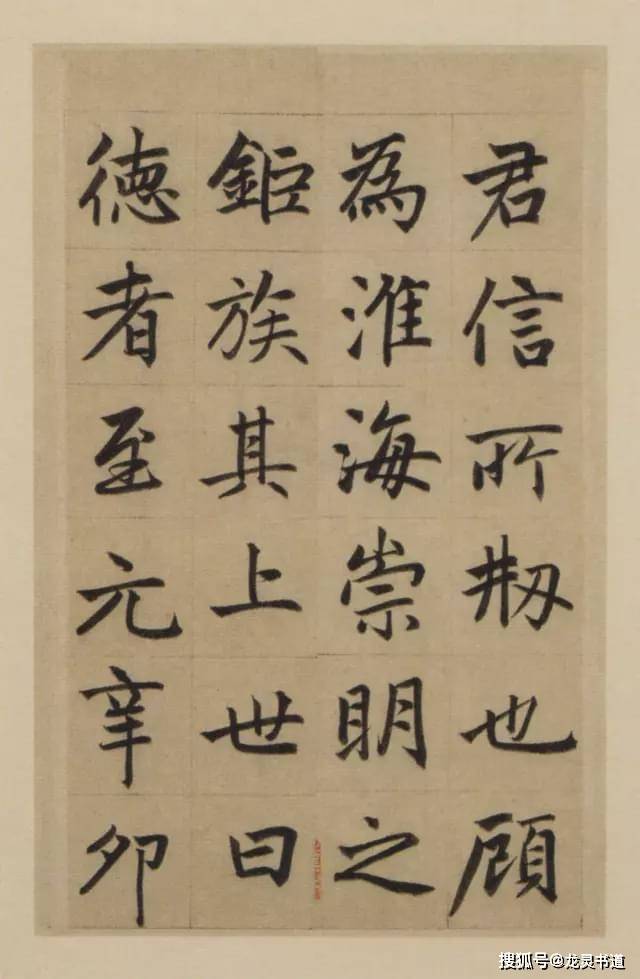 君信所刱也顾
為淮海崇明之
鉅族其上世曰
徳者至元辛卯
搜狐号@龙灵书道